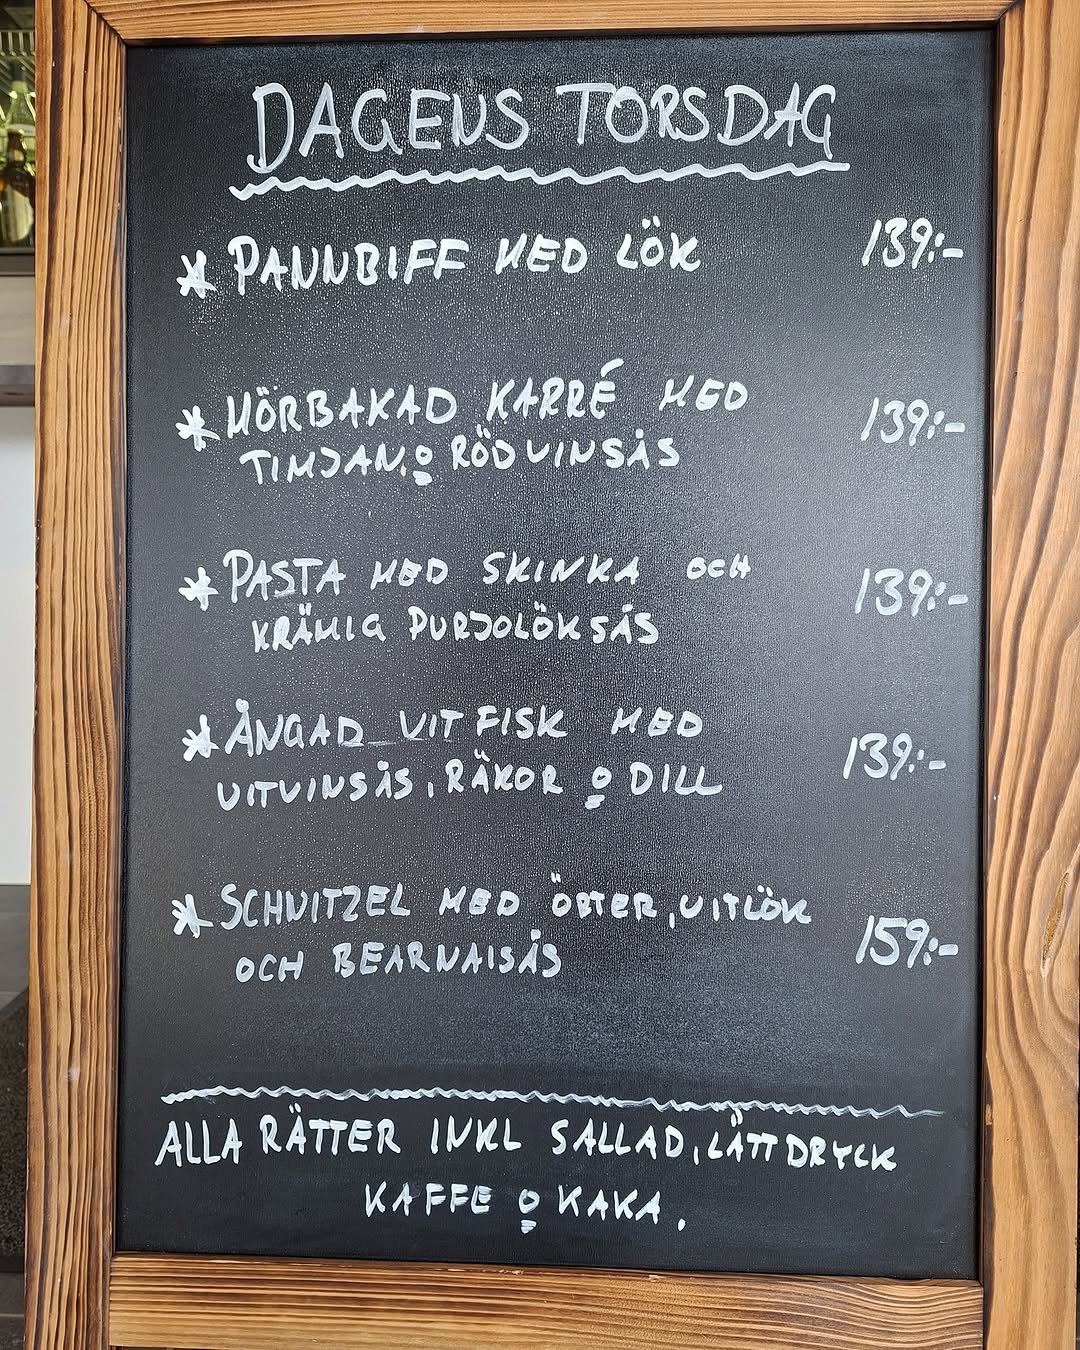 DAGENS TORSDAG
* PANNBIFF MED LÖK 139:-
* MÖRBAKAD KARRÉ MED 139:-
TIMJAN o RÖDVINSÅS
* PASTA MED SKINKA OCH 139:-
KRÄMIG PURJOLÖKSÅS
* ÅNGAD VIT FISK MED 139:-
VITVINSÅS, RÄKOR o DILL
* SCHNITZEL MED ÖRTER, VITLÖK 159:-
OCH BEARNAISÅS
ALLA RÄTTER INKL SALLAD, LÄTTDRYCK
KAFFE o KAKA.